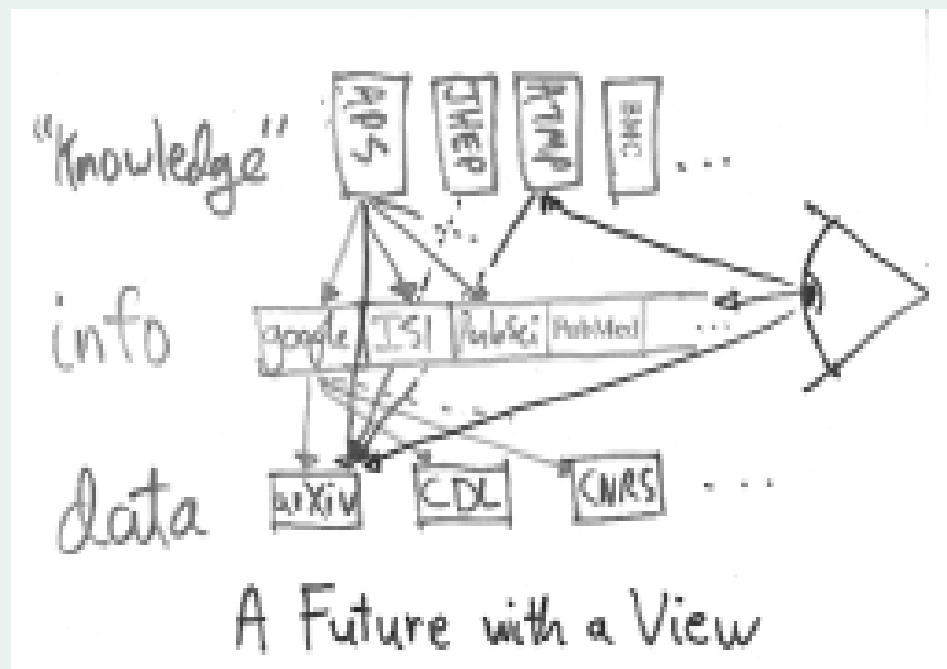 "Knowledge" APS JHEP ATMP BMC ...
info google ISI PubSci PubMed ...
data arXiv CDL CNRS ...
A Future with a View